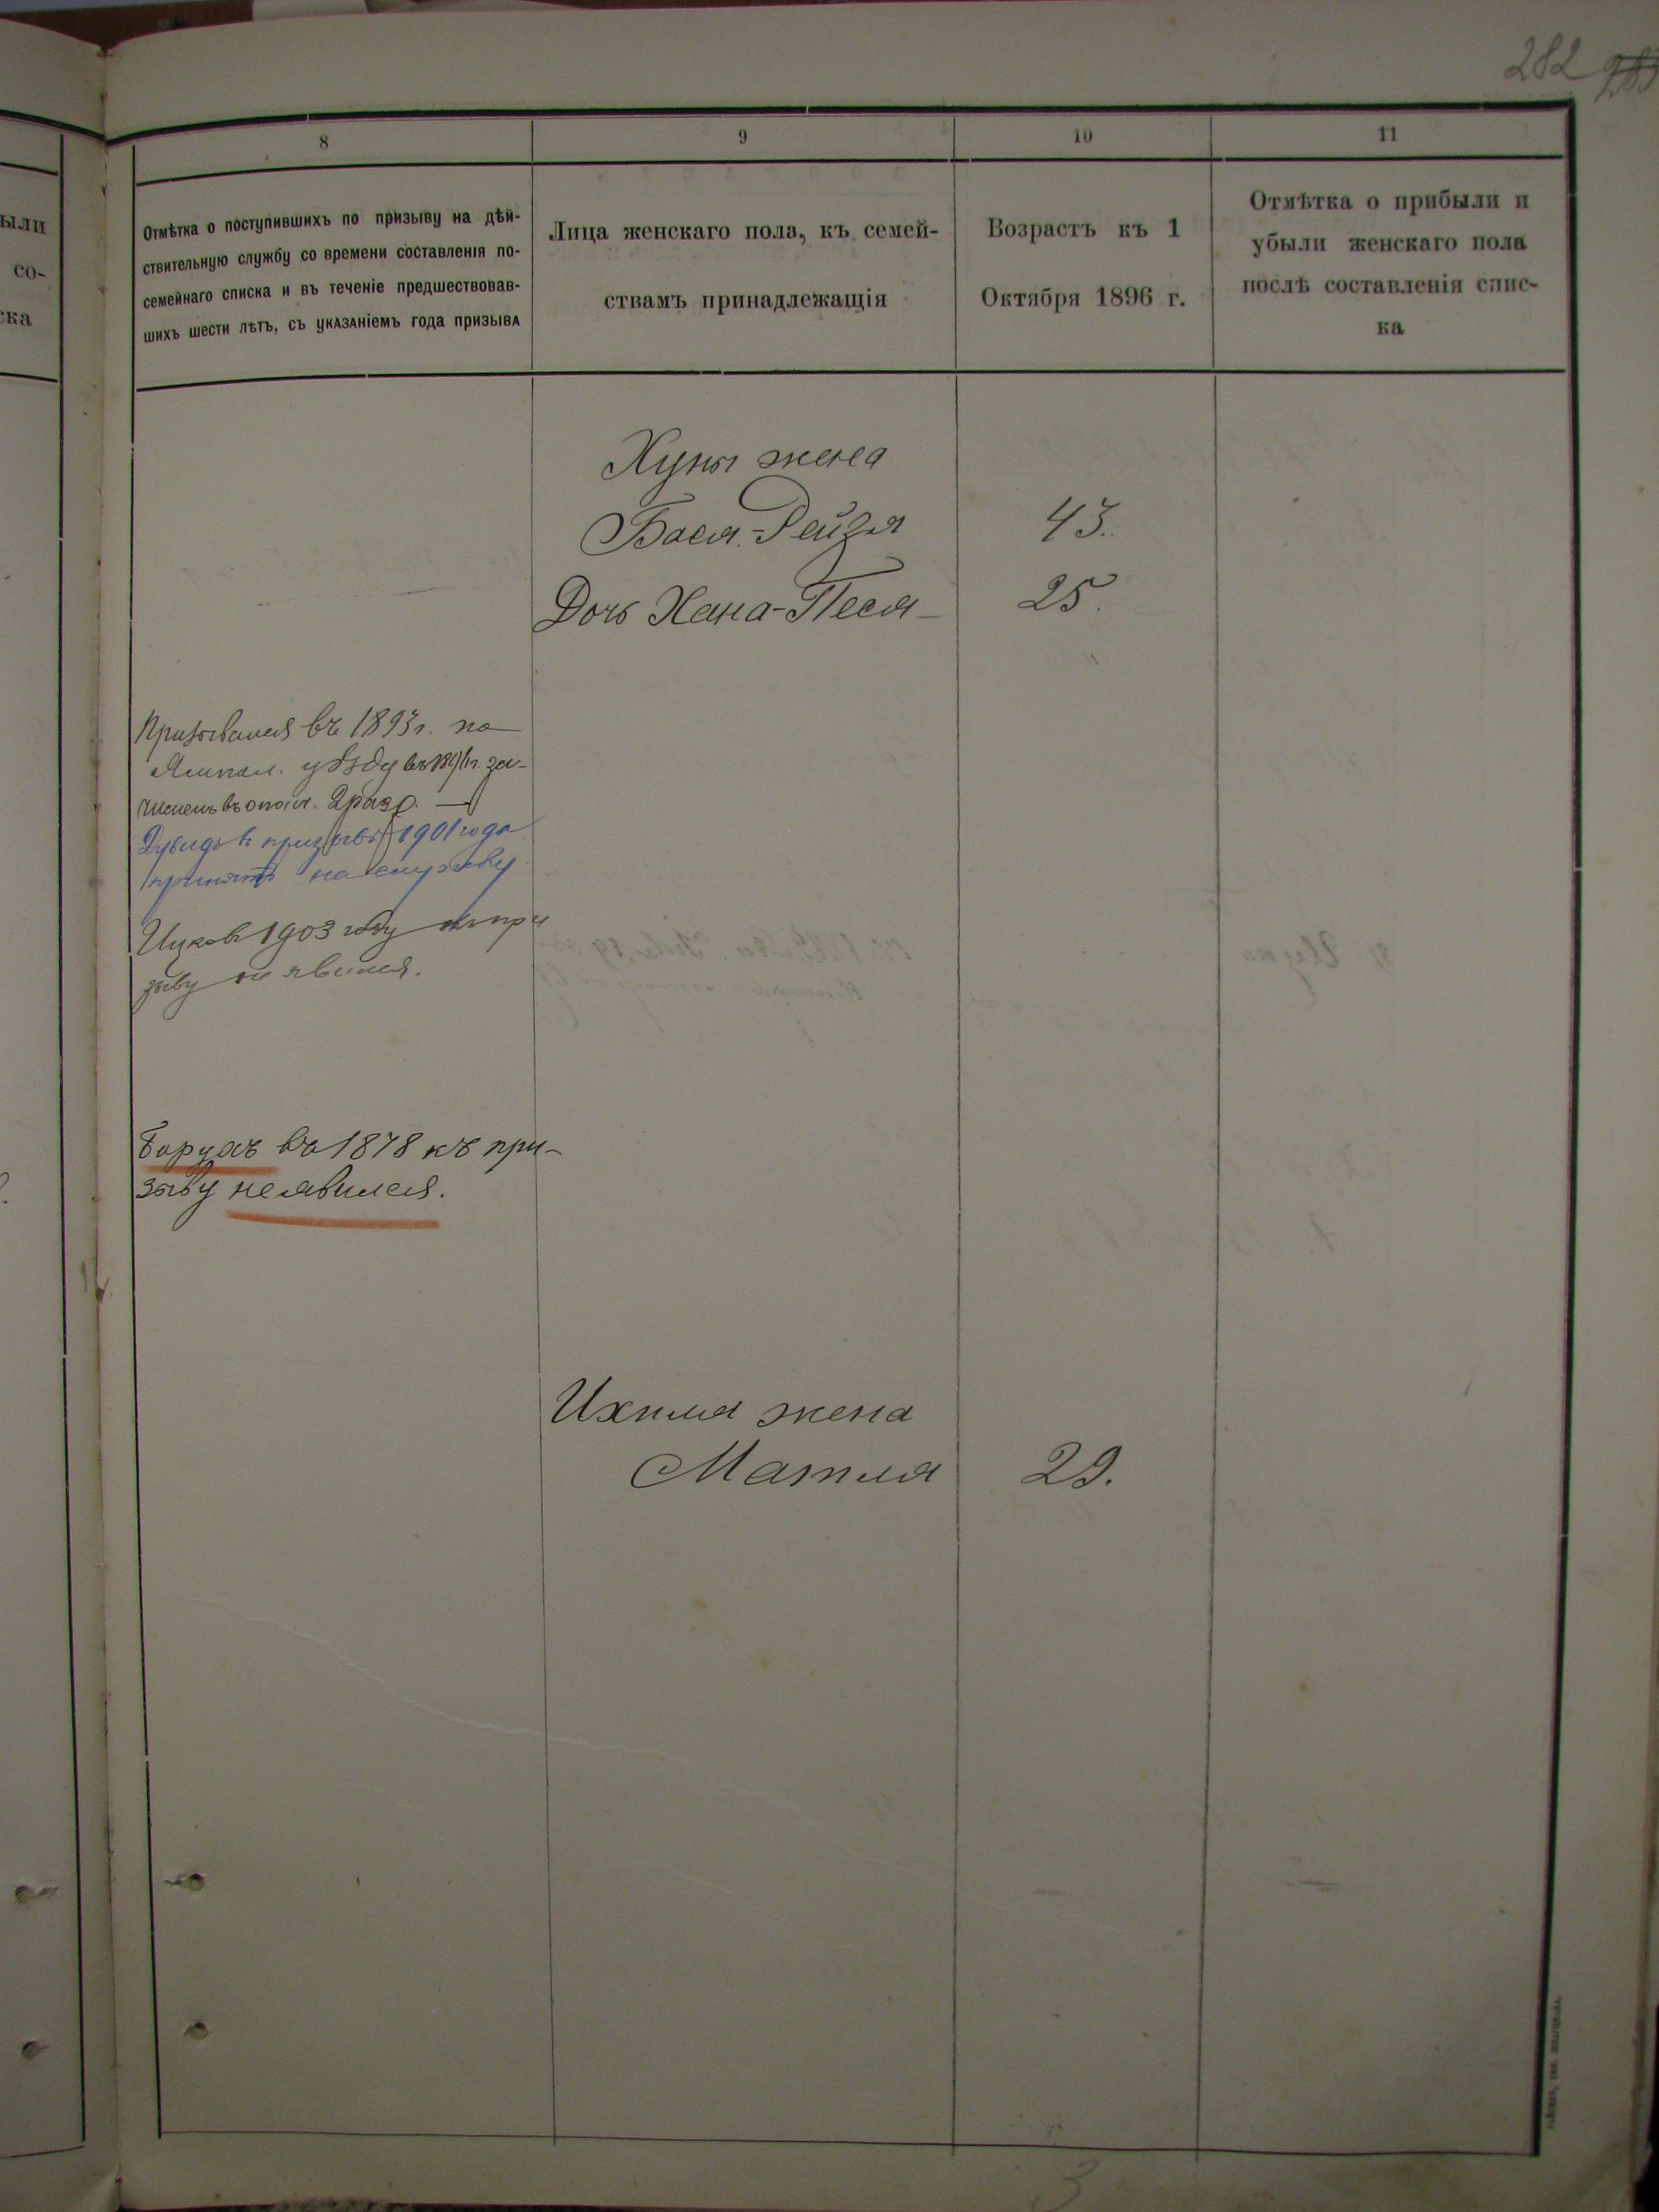 282
8
9
10
11
Отмѣтка о поступившихъ по призыву на дѣй-
ствительную службу со времени составленія по-
семейнаго списка и въ теченіе предшествовав-
шихъ шести лѣтъ, съ указаніемъ года призыва
Лица женскаго пола, къ семей-
ствамъ принадлежащія
Возрастъ къ 1
Октября 1896 г.
Отмѣтка о прибыли и
убыли женскаго пола
послѣ составленія спис-
ка
ыли
со-
ска
Хуны жена
Бася-Рейзя 43.
Дочь Хана-Песя 25.
Призывался въ 1893 г. по
Ямпол. уѣзду въ г. за-
численъ въ ополч. 2 разр.
Дувидъ въ призывъ 1901 года
принятъ на службу
Ицко въ 1903 году къ при
зыву не явился.
Борухъ въ 1878 къ при-
зыву не явился.
Ихила жена
Матля 29.